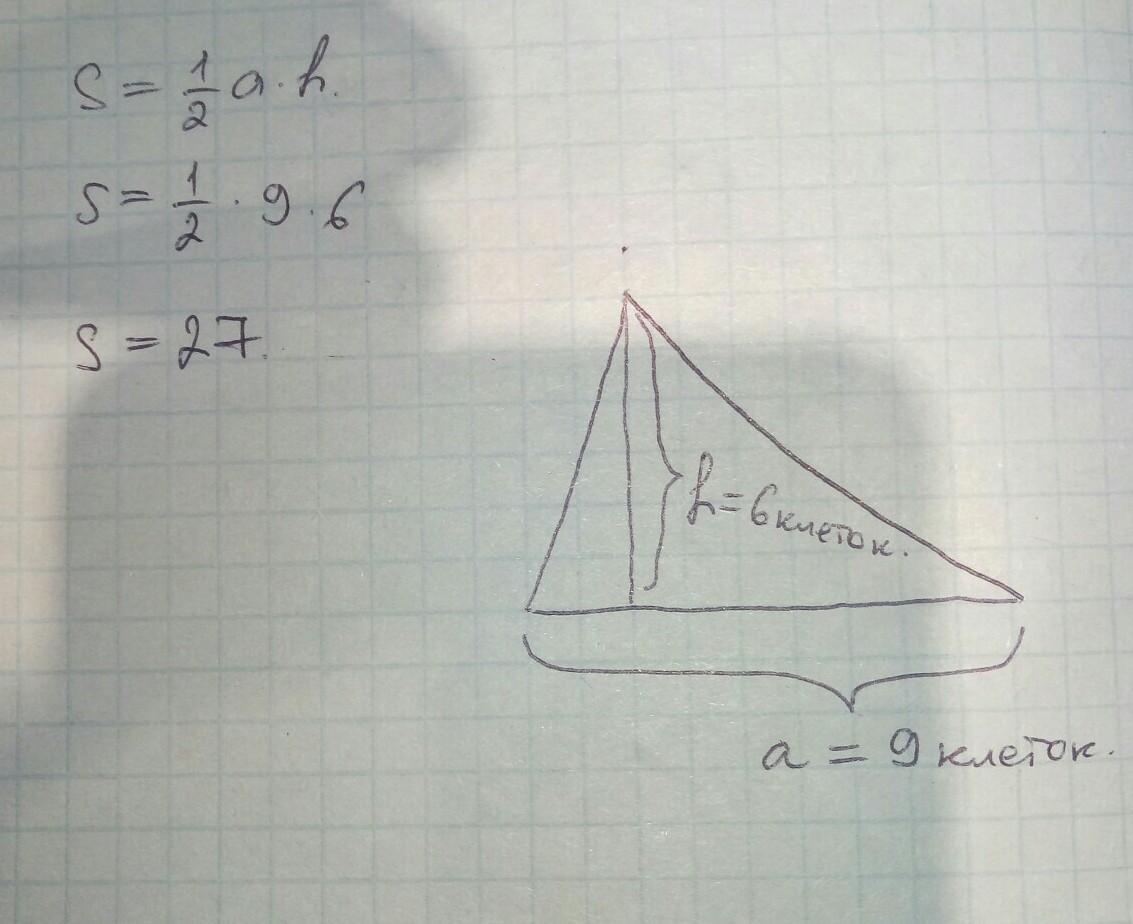 S = 1/2 a · h.
S = 1/2 · 9 · 6
S = 27.
h = 6 клеток.
a = 9 клеток.